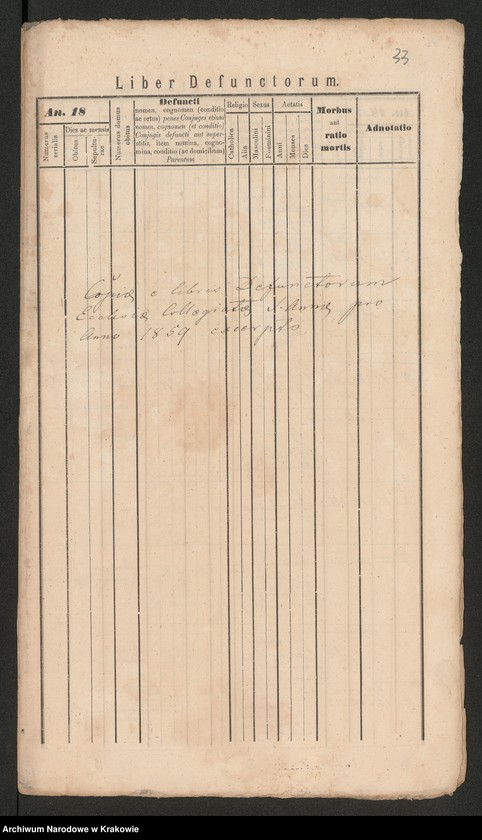 33
Liber Defunctorum.
An. 18
Numerus serialis
Dies ac mensis
Obitus
Sepulturae
Numerus domus obitus
Defuncti
nomen, cognomen (conditio
ac ortus) penes Conjuges etiam
nomen, cognomen (et conditio)
Conjugis defuncti aut super-
stitis, item nomina, cogno-
mina, conditio (ac domicilium)
Parentum
Religio
Catholica
Alia
Sexus
Masculini
Foeminini
Aetatis
Anni
Menses
Dies
Morbus
aut
ratio
mortis
Adnotatio
Copia e libris Defunctorum
Ecclesiae Collegiatae S. Annae pro
Anno 1859 excerpto
Archiwum Narodowe w Krakowie